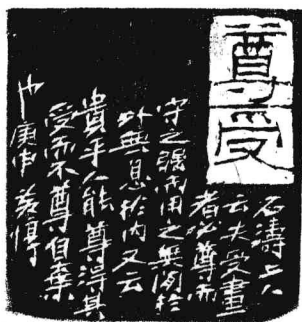 尊受
石濤上人
云夫受畫
者必尊而
守之彊而用之無間於
外無息於內又云
貴乎人能尊得其
受而不尊自棄
也庚申